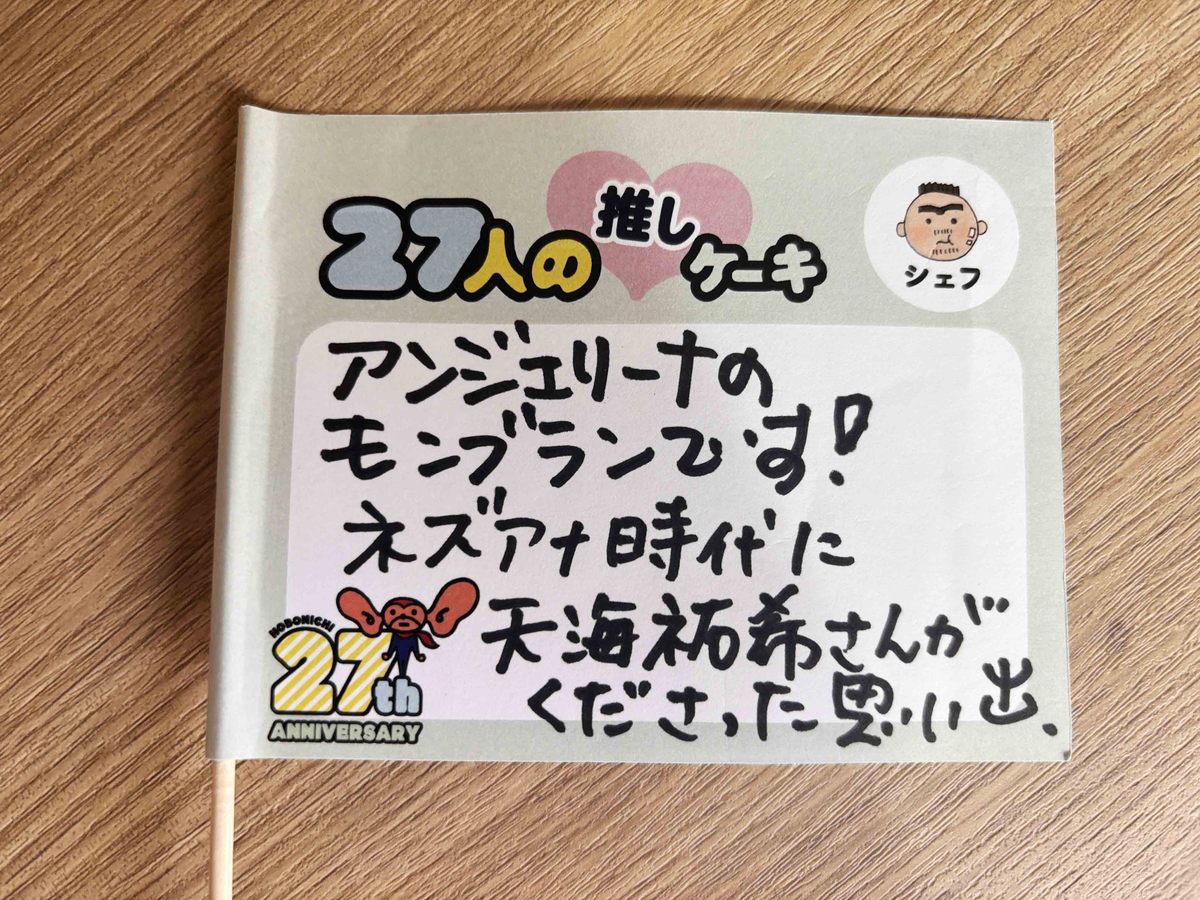 27人の推しケーキ
シェフ
アンジェリーナの
モンブランです!
ネズアナ時代に
天海祐希さんが
くださった思い出、
HOBONICHI
27th
ANNIVERSARY